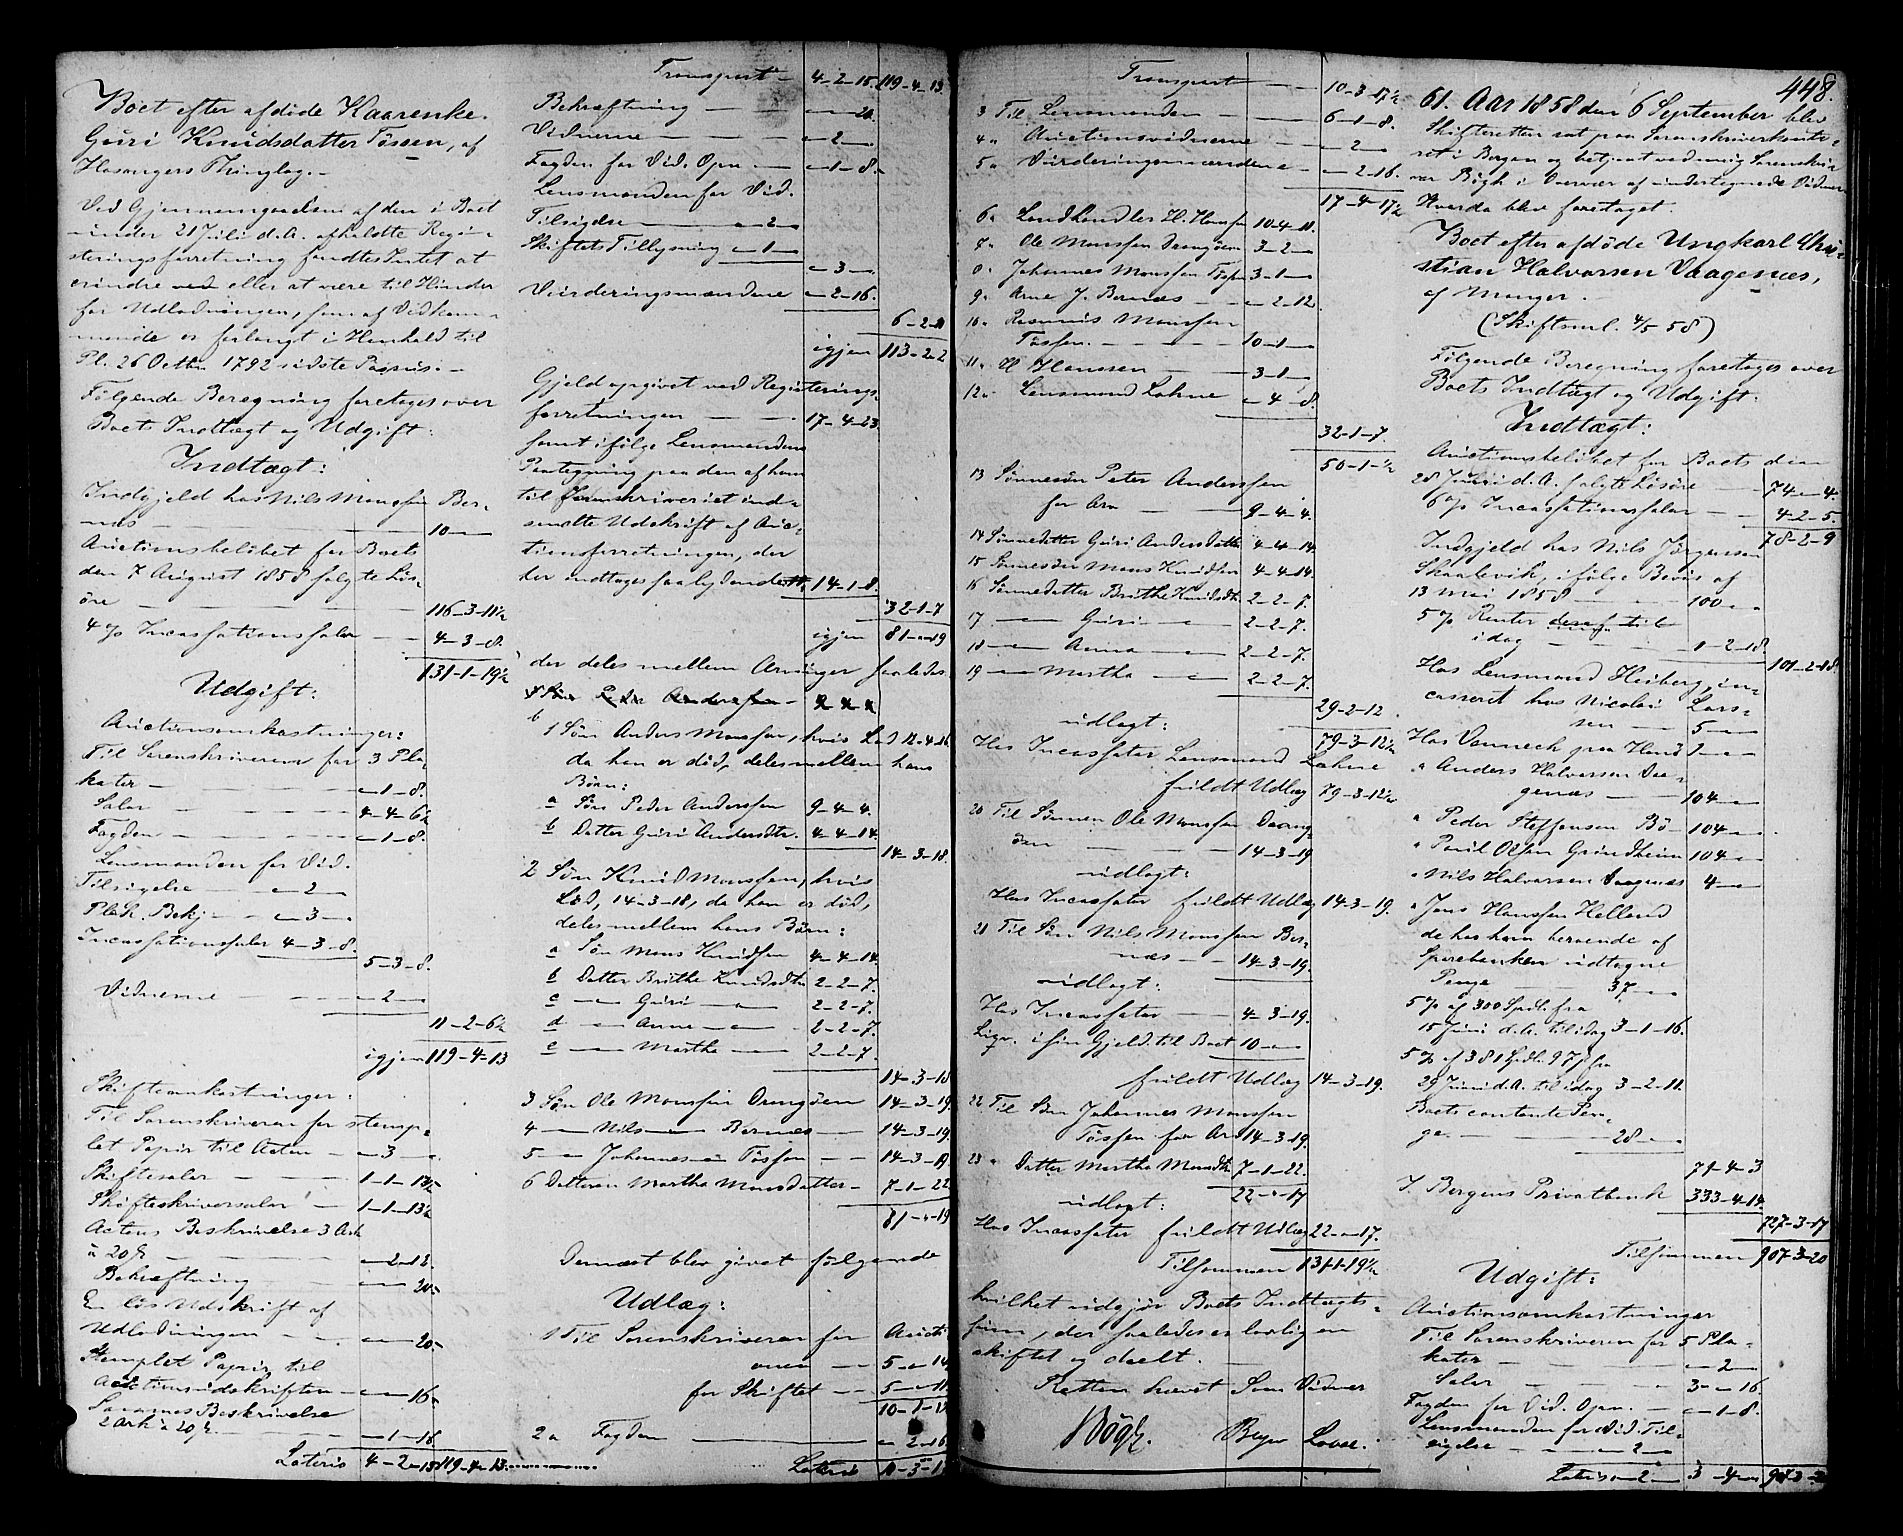 Boet efter afdöde Kaarenke.
Guri Knudsdatter Tössen, af
Hosangers Thinglag.-
Ved Gjennemgaaelsen af den i Boet
under 21 Juli d.A. afholdte Regi-
steringsforretning fandtes Intet at
erindre ved eller at være til Hinder
for Udlodningen, som af Vedkom-
mende er forlangt i Henhold til
Pl. 26 Octbr. 1792 sidste Passus.-
Fölgende Beregning foretages over
Boets Indtægt og Udgift:
Indtægt:
Indgjeld hos Nils Monsen Ber-
næs — 10 -
Auctionsbelöbet for Boets
den 7 August 1858 solgte Lös-
öre — 116-3-11½
4 % Incassationssalær — 4-3-8.
131-1-19½
Udgift:
Auctionsomkostninger:
Til Sorenskriveren for 3 Pla-
kater — „-1-8.
Salær — 4-4-6½
Fogden — „-1-8.
Lensmanden for Vid.
Tilsigelse — „-2-„
Plak. Bekj. - „-3-„
Incassationssalær 4-3-8.
5-3-8.
Vidnerne — „-2-„
11-2-6½
igjen 119-4-13
Skifteomkostninger:
Til Sorenskriveren for stemp-
let Papir til Acten — „-3-„
Skiftesalær — 1-1-13½
Skifteskriversalær — 1-1-13½
Actens Beskrivelse 3 Ark
à 20 ß — „-2-12.
Bekræftning — „-„-20.
En lös Udskrift af
Udlodningen — „-„-20.
Stemplet Papir til
Auctionsudskriften — „-„-16.
Sammes Beskrivelse
2 Ark à 20 ß. — „-1-16
Lateris 4-2-15 119-4-13
Transport — 4-2-15. 119-4-13.
Bekræftning — „-„-20.
Vidnerne — „-2-„
Fogden for Vid. Opn. — „-1-8.
Lensmanden for Vid.
Tilsigelse — „-2-„
Skiftets Tillysning „-1-„
„-3-„
Vurderingsmændene „-2-16.
6-2-11
igjen 113-2-2
Gjeld opgivet ved Registerings-
forretningen — 17-4-23.
samt ifölge Lensmandens
Paategning paa den af ham
til Sorenskriveriet ind-
sendte Udskrift af Auc-
tionsforretningen, der
her indtages saalydende 14-1-8.
32-1-7
igjen 81-„-19
der deles mellem Arvinger saaledes
1 Sön Peder Anderssen - 9-4-4
1 Sön Anders Monssen, hvis Lod
da han er död, deles mellem hans
Börn:
a Sön Peder Anderssen 9-4-4.
b Datter Guri Andersdtr. 4-4-14.
14-3-18.
2 Sön Knud Monssen, hvis
Lod, 14-3-18, da han er död,
deles mellem hans Börn:
a Sön Mons Knudsen 4-4-14.
b Datter Brithe Knudsdtr 2-2-7.
c — Guri — 2-2-7.
d — Anne — 2-2-7.
e — Marthe — 2-2-7.
14-3-18
3 Sön Ole Monssen Drengöen 14-3-19.
4 — Nils — Bernæs — 14-3-19.
5 — Johannes — Tössen — 14-3-19
6 Datteren Martha Monsdatter - 7-1-22
81-„-19
Dernæst blev givet fölgende
Udlæg:
1 Til Sorenskriveren for Aucti-
onen — 5-„-14
for Skiftet — 5-„-11
10-1-1
2 „ Fogden — „-2-16
Lateris 10-3-17
Transport — 10-3-17½
3 Til Lensmanden — 6-1-8.
4 „ Auctionsvidnerne — „-2-„
5 „ Vurderingsmændene — „-2-16.
17-4-17½
6 „ Landhandler H. Hansen 10-4-11.
7 „ Ole Monssen Drengöen 3-2-„
8 „ Johannes Monssen Tössen 3-1-„
9 „ Arne J. Bernæs — „-2-12
10 „ Rasmus Monssen
Tössen. — 10-1-„
11 „ H Hanssen — 3-1-„
12 „ Lensmand Lohne „-4-8.
32-1-7.
50-1-½
13 Sönnesön Peter Anderssen
for Arv — 9-4-4.
14 Sönnedatter Guri Andersdatter 4-4-14.
15 Sönnesön Mons Knudsen 4-4-14.
16 Sönnedatter Brithe Knudsdtr 2-2-7.
17 — Guri — 2-2-7.
18 — Anna — 2-2-7.
19 — Martha — 2-2-7.
29-2-12
79-3-12½
udlagt:
Hos Incassator Lensmand Lohne
fuldt Udlæg 79-3-12½
20 Til Sönnen Ole Monssen Dreng-
öen — 14-3-19
udlagt:
Hos Incassator fuldt Udlæg 14-3-19.
21 Til Sön Nils Monssen Ber-
næs — 14-3-19.
udlagt:
Hos Incassator — 4-3-19.
Liqv. i sin Gjeld til Boet 10-„-„
fuldt Udlæg 14-3-19.
22 Til Sön Johannes Monssen
Tössen for Arv 14-3-19.
23 „ Datter Martha Monsdtr 7-1-22.
22-„-17
udlagt:
Hos Incassator fuldt Udlæg 22-„-17.
Tilsammen 131-1-19½
hvilket udgjör Boets Indtægts-
sum, der saaledes er lovligen
skiftet og deelt.
Retten hævet Som Vidner
Bögh.
448.
61. Aar 1858 den 6 September blev
Skifteretten sat paa Sorenskriverkonto-
ret i Bergen og betjent ved mig Sorenskri-
ver Bögh i Overvær af undertegnede Vidner
Hvorda blev foretaget.
Boet efter afdöde Ungkarl Chri-
stian Halvorsen Vaagenæs,
af Manger.
(Skiftsml. 4/5 58)
Fölgende Beregning foretages over
Boets Indtægt og Udgift:
Indtægt:
Auctionsbelöbet for Boets den
28 Juni d.A. solgte Lösöre — 74-„-4.
6 % Incassationssalær — 4-2-5.
78-2-9
Indgjeld hos Nils Jörgensen
Skaalevik, ifölge Bevis af
13 Mai 1858 — 100-„-„
5 % Renter deraf til
idag — 1-2-18.
101-2-18.
Hos Lensmand Heiberg, in-
casseret hos Nicolai Lars-
sen — 5-„-„
Hos Vennech paa Haand 1-„-„
„ Anders Halvorsen Vaa-
genæs — 104-„-„
„ Peder Steffensen Bö- 104-„-„
„ Poul Olsen Grindheim 104-„-„
„ Nils Halvorsen Vaagenæs 4-„-„
„ Jens Hanssen Helland
de hos ham beroende af
Sparebanken udtagne
Penge — 37-„-„
5 % af 300 Spdl. fra
15 Juni d.A. til idag 3-1-16.
5 % af 381 Spdl. 97 ß fra
29 Juni d.A. til idag 3-2-11.
Boets contante Pen-
ge. — 28-„-„
71-4-3
I Bergens Privatbank 333-4-14.
727-3-17
Tilsammen 907-3-20
Udgift:
Auctionsomkostninger
Til Sorenskriveren for 5 Pla-
kater — „-2-„
Salær — 3-„-16
Fogden for Vid. Opn. — „-1-8.
Lensmanden for Vid. Til-
sigelse — „-2-„
Lateris „-2-„ 3-4-„ 907-3-20